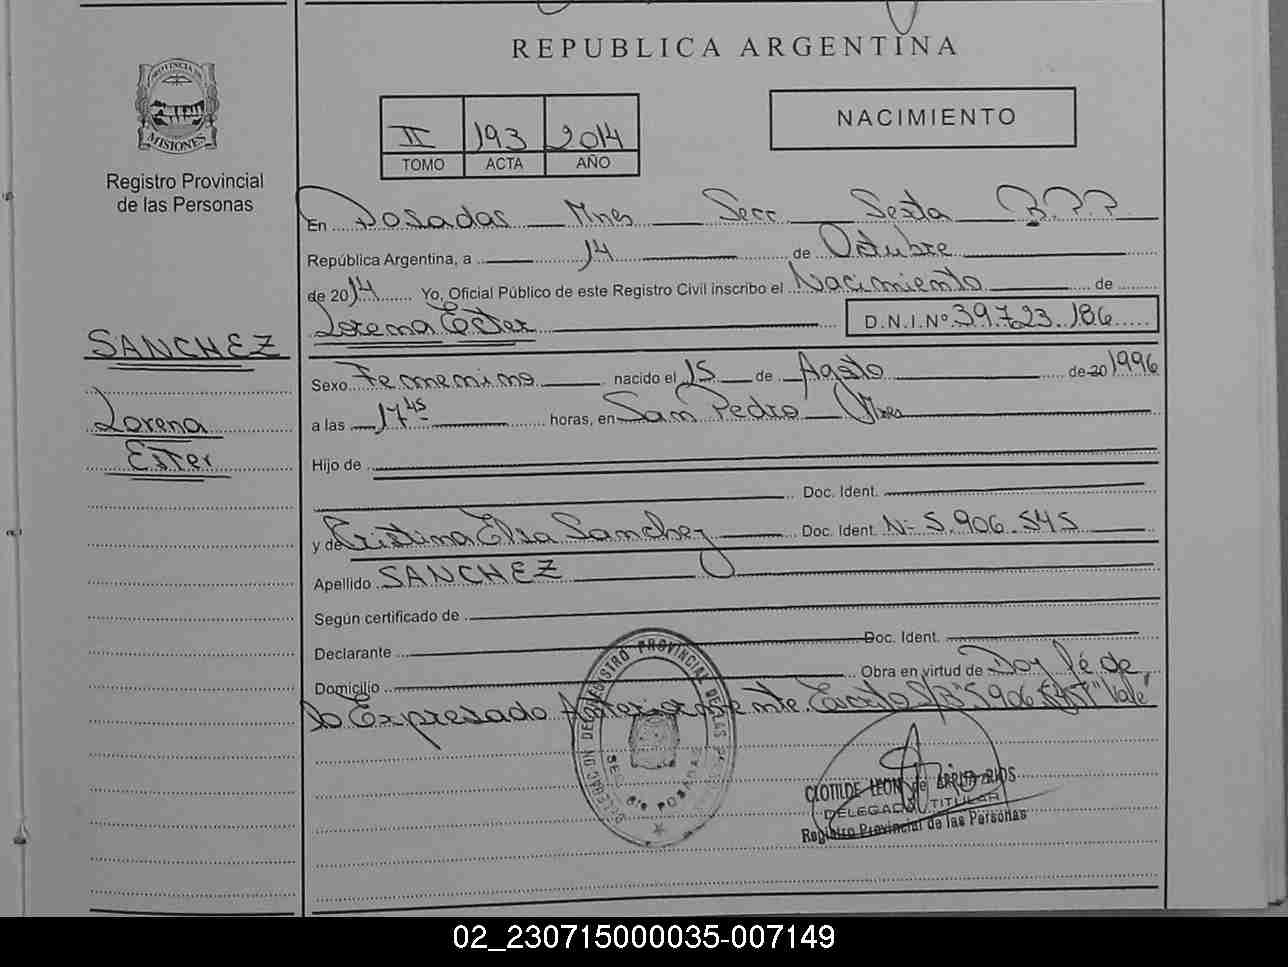 REPUBLICA ARGENTINA
PROVINCIA DE
MISIONES
Registro Provincial
de las Personas
II 193 2014
TOMO ACTA AÑO
NACIMIENTO
En Posadas Mnes Secc Sexta
República Argentina, a 14 de Octubre
de 2014 Yo, Oficial Público de este Registro Civil inscribo el Nacimiento de
Lorena Ester D.N.I.Nº 39.723.186
SANCHEZ
Lorena
Ester
Sexo Femenino nacido el 15 de Agosto de 20 1996
a las 17 45 horas, en San Pedro Mnes
Hijo de
Doc. Ident.
y de Cristina Elsa Sanchez Doc. Ident. Nº 5.906.545
Apellido SANCHEZ
Según certificado de
Declarante Doc. Ident.
Domicilio Obra en virtud de Doy fé de
lo Expresado Anteriormente. Escrito S/B "5.906.545" "Vale"
DELEGACION DE REGISTRO PROVINCIAL DE LAS PERSONAS
SEC 6ta POSADAS
CLOTILDE LEON de ARRUA RIOS
DELEGADA TITULAR
Registro Provincial de las Personas
02_230715000035-007149